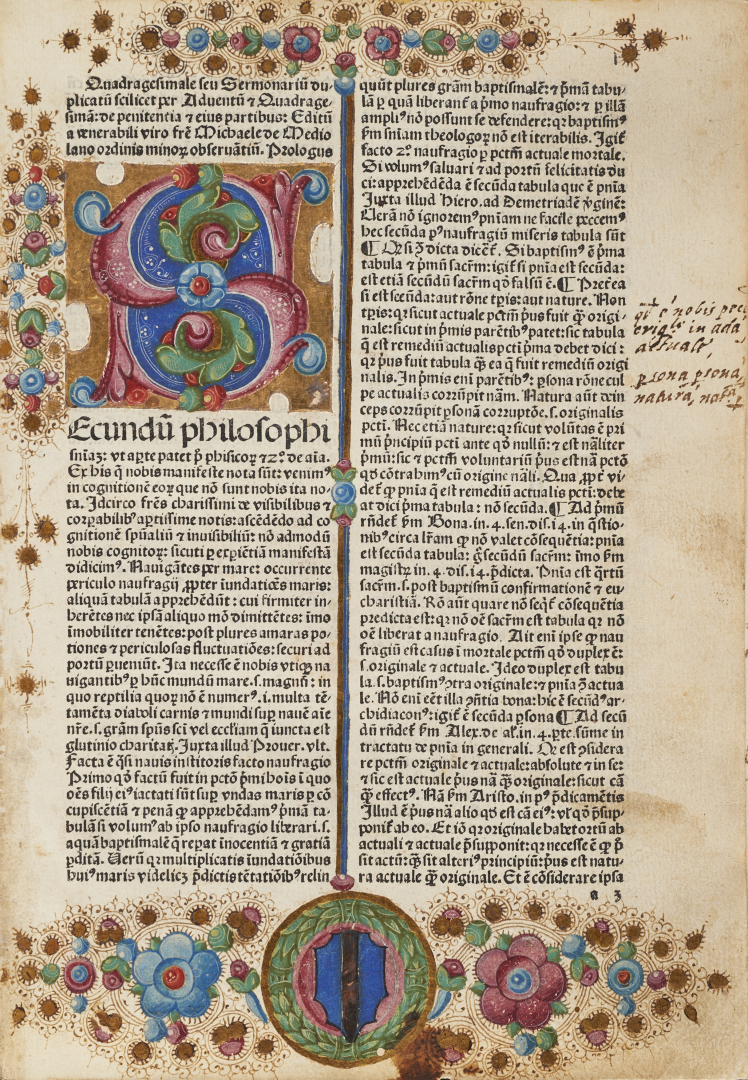 Quadragesimale seu Sermonariū du-
plicatū scilicet per Aduentū ⁊ Quadrage-
simā: de penitentia ⁊ eius partibus: Editū
a venerabili viro frē Michaele de Medio
lano ordinis minoꝝ obseruātiū. Prologus
Ecundū philosophi
sniaꝫ: vt aꝑte patet p̄ phisicoꝝ ⁊ 2º. de aīa.
Ex his q̄ nobis manifeste nota sūt: venimꝰ
in cognitionē eoꝝ que nō sunt nobis ita no-
ta. Idcirco frēs charissimi de visibilibus ⁊
coꝛꝑalibꝰ aꝑtissime notis: ascēdēdo ad co
gnitionē spūaliū ⁊ inuisibiliū: nō admodū
nobis cognitoꝝ: sicuti ꝑ exꝑiētiā manifestā
didicimꝰ. Nauigātes per mare: occurrente
periculo naufragij ꝓpter iundatiōes maris:
aliquā tabulā apprehēdūt: cui firmiter in-
herētes nec ipsā aliquo mō dimittētes: imo
imobiliter tenētes: post plures amaras po-
tiones ⁊ periculosas fluctuatiōes: securi ad
portū ꝑueniūt. Ita necesse ē nobis vticꝫ na
uigantibꝰ ꝑ hūc mundū mare.s. magnū: in
quo reptilia quoꝝ nō ē numerꝰ.i. multa tē-
tamēta diaboli carnis ⁊ mundi suꝑ nauē aīe
nr̄e.s. grām spūs sci vel eccl̄iam q̄ iuncta est
glutinio charitatꝭ. Juxta illud Prouer. vlt.
Facta ē q̄si nauis institoris facto naufragio
Primo qd̓ factū fuit in pctō p̄mi hoīs i quo
oēs filij eiꝰ iactati sūt suꝑ vndas maris ꝑ cō
cupiscētiā ⁊ penā ꝙ apprehēdamꝰ p̄mā ta-
bulā si volumꝰ ab ipso naufragio liberari.s.
aquā baptismalē q̄ reꝑat inocentiā ⁊ gratiā
ꝑditā. Uerū qꝛ multiplicatis iundatiōibus
huiꝰ maris videlicꝫ p̄dictis tētatiōibꝰ relin
quūt plures grām baptismalē: ⁊ p̄mā tabu-
lā ꝑ quā liberant̄ a p̄mo naufragio: ⁊ ꝑ illā
ampliꝰ nō possunt se defendere: qꝛ baptismꝰ
s̄m sniam theologoꝝ nō est iterabilis. Igit̄
facto 2º. naufragio ꝑ pctm̄ actuale mortale.
Si volumꝰ saluari ⁊ ad portū felicitatis du
ci: apprehēdēda ē secūda tabula que ē pnīa
Juxta illud Hiero. ad Demetriadē v̓ginē:
Uerā nō ignoremꝰ pniam ne facile peccemꝰ
hec secūda pꝰ naufragiū miseris tabula sūt
¶ Qꝛ si ꝯ dicta dicet̄. Si baptismꝰ ē p̄ma
tabula ⁊ p̄mū sacrm̄: igit̄ si pnīa est secūda:
est etiā secūdū sacrm̄ qd̓ falsū ē. ¶ Preterea
si est secūda: aut rōne tꝑis: aut nature. Non
tꝑis: qꝛ sicut actuale pctm̄ pꝰus fuit ꝙ origi-
nale: sicut in p̄mis parētibꝰ patet: sic tabula
q̄ est remediū actualis pcti p̄ma debet dici:
qꝛ pꝰus fuit tabula ꝙ ea q̄ fuit remediū origi
nalis. In p̄mis eni parētibꝰ: ꝑsona rōne cul
pe actualis corrupit nām. Natura aūt dein
ceps corrupit ꝑsonā corruptōe.s. originalis
pcti. Nec etiā nature: qꝛ sicut volūtas ē pri
mū p̄ncipiū pcti ante qd̓ nullū: ⁊ est nāliter
p̄mū: sic ⁊ pctm̄ voluntariū pꝰus est nā pctō
qd̓ cōtrahimꝰ cū origine nāli. Qua ꝓpt̄ vi-
det̄ ꝙ pnīa q̄ est remediū actualis pcti: debe
at dici p̄ma tabula: nō secūda. ¶ Ad p̄mū
rn̄det̄ s̄m Bona. in. 4. sen. dis. 14. in q̄stio-
nibꝰ circa lr̄am ꝙ nō valet cōsequētia: pnia
est secūda tabula: g̊ secūdū sacrm̄: imo s̄m
magistꝝ in. 4. dis. 14. p̄dicta. Pnīa est q̄rtū
sacrm̄.s. post baptismū confirmationē ⁊ eu-
charistiā. Rō aūt quare nō seqt̄ cōsequētia
predicta est: qꝛ nō oē sacrm̄ est tabula qꝛ nō
oē liberat a naufragio. Ait eni ipse ꝙ nau
fragiū est casus i mortale pctm̄ qd̓ duplex ē:
s. originale ⁊ actuale. Ideo duplex est tabu
la.s. baptismꝰ ꝯtra originale: ⁊ pnīa ꝯ actua
le. Nō eni eēt illa ꝯn̄tia bona: hic ē secūdꝰ ar-
chidiaconꝰ: igit̄ ē secūda ꝑsona ¶ Ad secū
dū rn̄det̄ s̄m Alex. de al̓. in. 4. ꝑte. sūme in
tractatu de pnīa in generali. Qꝛ est ꝯsidera
re pctm̄ originale ⁊ actuale: absolute ⁊ in se:
⁊ sic est actuale pꝰus nā ꝙ originale: sicut cā
ꝙ effectꝰ. Nā s̄m Aristo. in pꝰ p̄dicamētis
Illud ē pꝰus nā alio qd̓ est cā eiꝰ: vl̓ qd̓ p̄sup-
ponit̄ ab eo. Et iō qꝛ originale habet ortū ab
actuali ⁊ actuale p̄supponit: qꝛ necesse ē ꝙ p̄
sit actū: ꝙ sit alteriꝰ principiū: pꝰus est natu-
ra actuale ꝙ originale. Et ē cōsiderare ipsa
a 3